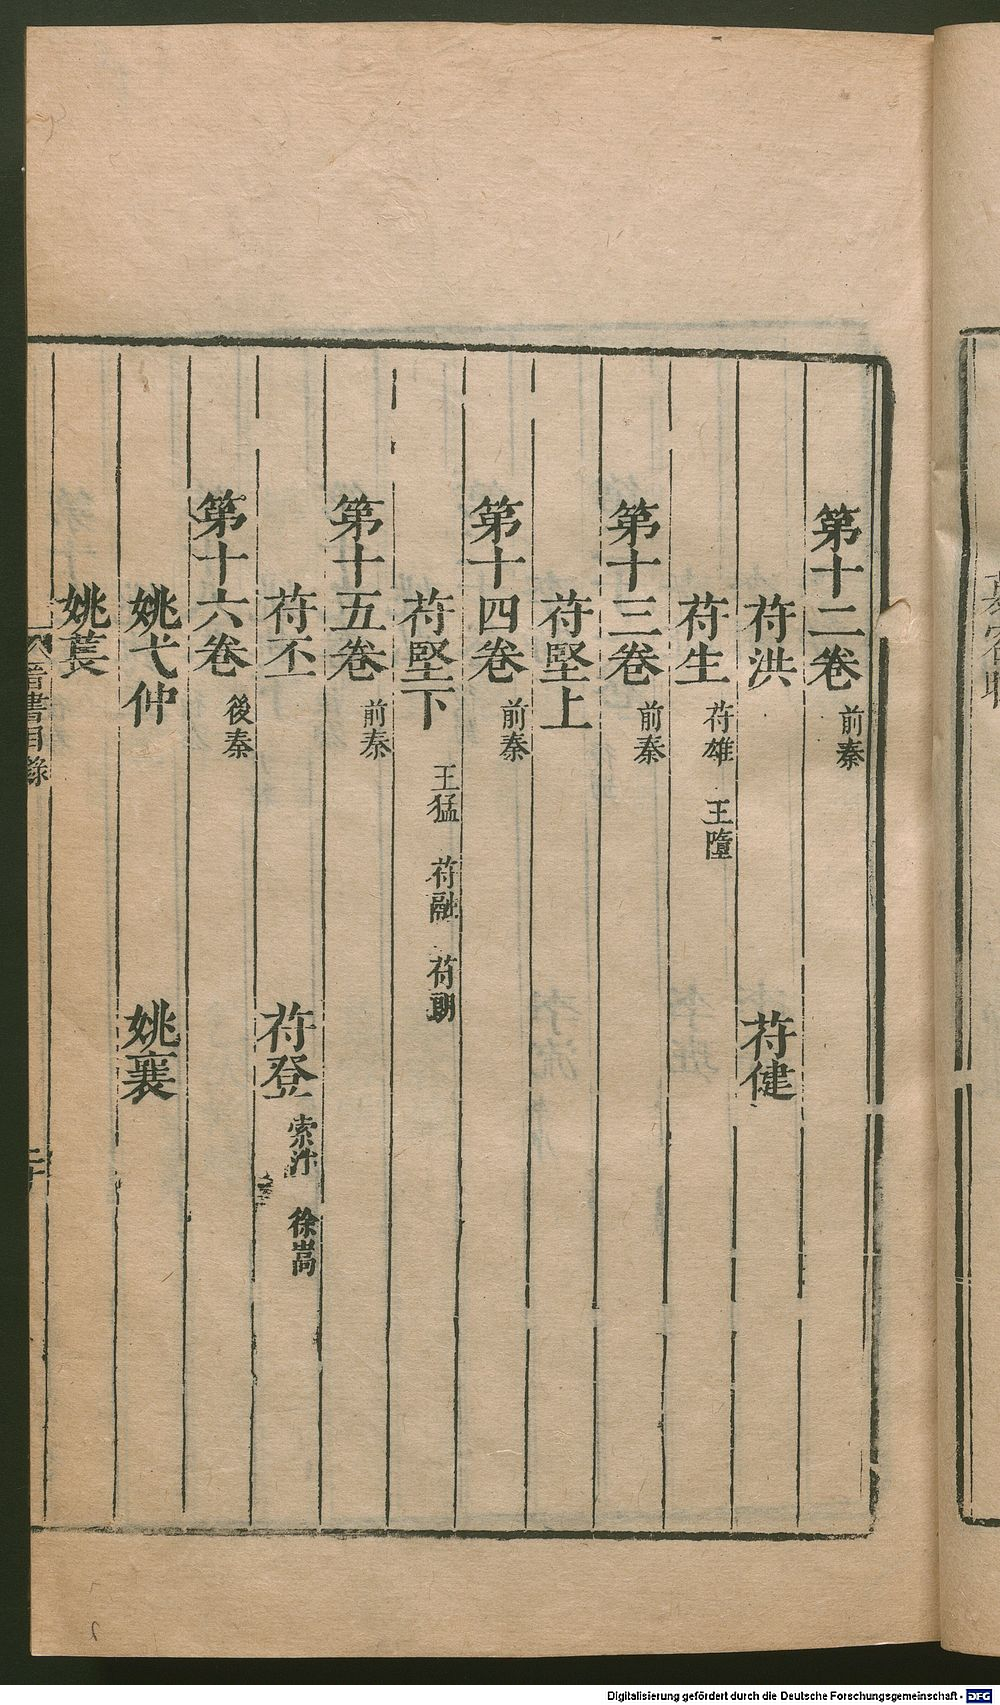 第十二卷 前秦
苻洪 苻健
苻生 苻雄 王墮
第十三卷 前秦
苻堅上
第十四卷 前秦
苻堅下 王猛 苻融 苻朗
第十五卷 前秦
苻丕 苻登 索泮 徐嵩
第十六卷 後秦
姚弋仲 姚襄
姚萇
晉書目錄
Digitalisierung gefördert durch die Deutsche Forschungsgemeinschaft - DFG